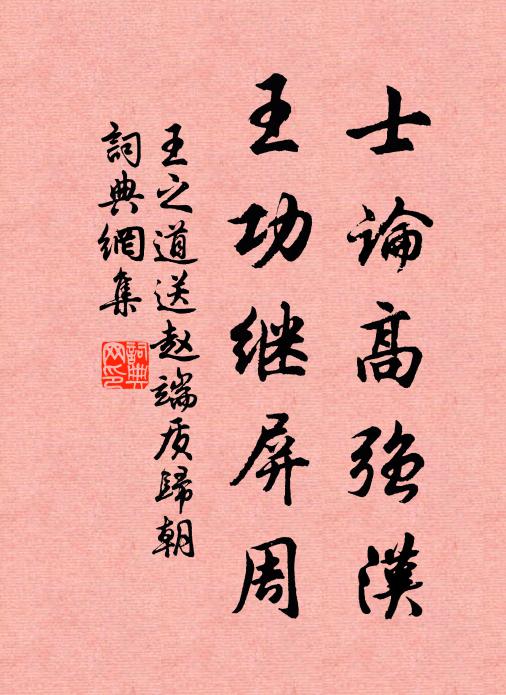 士論高強漢
王功继屏周
王之道送赵端质歸朝
詞典網集
詞典网印